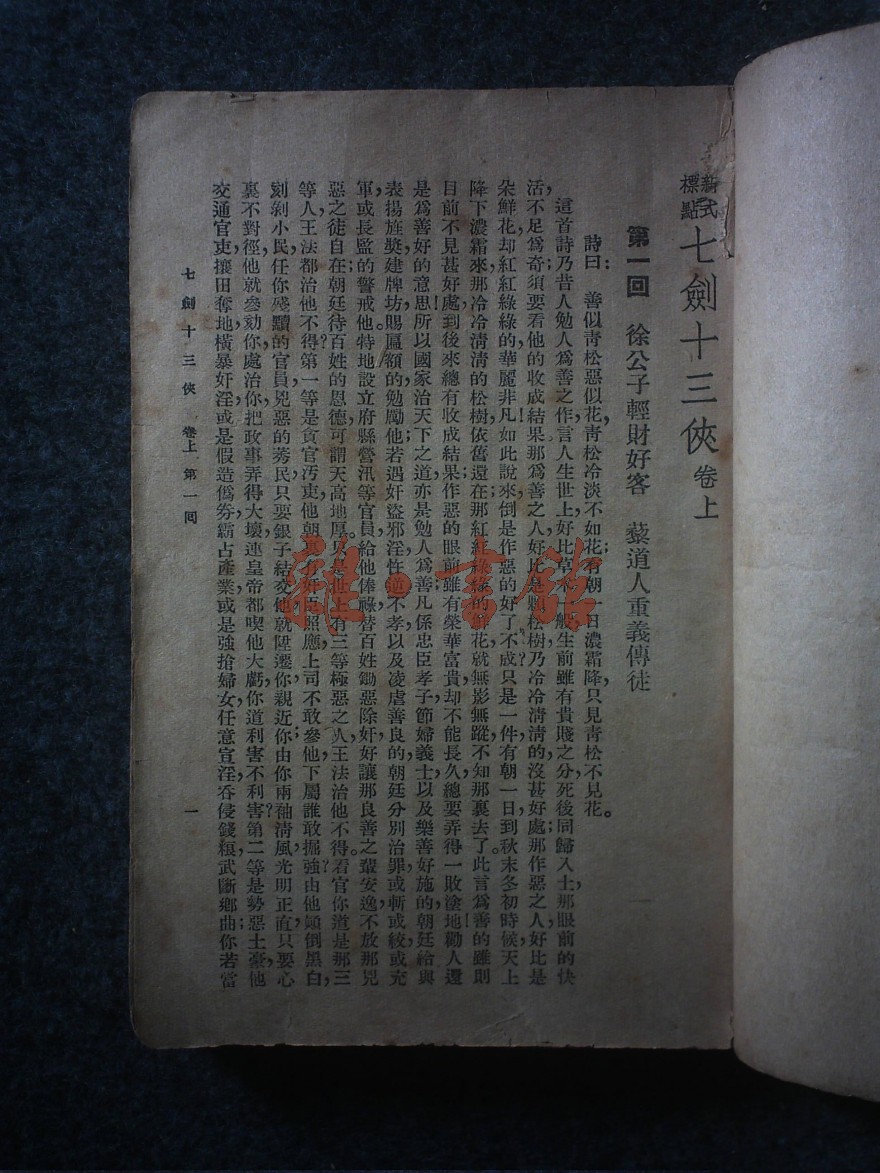 新式標點 七劍十三俠 卷上
第一回 徐公子輕財好客 藜道人重義傳徒
詩曰: 善似青松惡似花,青松冷淡不如花;有朝一日濃霜降,只見青松不見花。
這首詩乃昔人勉人爲善之作,言人生世上,好比草木一般,生前雖有貴賤之分,死後同歸入土,那眼前的快
活,不足爲奇;須要看他的收成結果。那爲善之人,好比是顆松樹,乃冷冷清清的,沒甚好處;那作惡之人,好比是
朵鮮花,却紅紅綠綠的華麗非凡!如此說來,倒是作惡的好了不成?只是一件,有朝一日,到秋末冬初時候,天上
降下濃霜來,那冷冷清清的松樹,依舊還在;那紅紅綠綠的鮮花,就無影無蹤,不知那裏去了。此言爲善的雖則
目前不見甚好處,到後來總有收成結果;作惡的眼前雖有榮華富貴,却不能長久,總要弄得一敗塗地!勸人還
是爲善好的意思!所以國家治天下之道,亦是勉人爲善;凡係忠臣孝子,節婦義士,以及樂善好施的,朝廷給與
表揚旌獎,建牌坊,賜匾額的勉勵他;若遇奸盜邪淫,忤逆不孝,以及凌虐善良的,朝廷分別治罪,或斬或絞,或充
軍,或長監的警戒他。特地設立府縣營汛等官員,給他俸祿,替百姓鋤惡除奸,好讓那良善之輩安逸,不放那兇
惡之徒自在;朝廷待百姓的恩德,可謂天高地厚。只是世上有三等極惡之人,王法治他不得。看官,你道是那三
等人,王法都治他不得?第一等是貪官污吏,他朝裏有奸臣照應,上司不敢參他,下屬誰敢掘強?由他顛倒黑白,
刻剝小民;任你殘黷的官員,兇惡的莠民,只要銀子結交他,就陞遷你,親近你;由你兩袖清風,光明正直,只要心
裏不對徑,他就參劾你,處治你,把政事弄得大壞,連皇帝都喫他大虧,你道利害不利害?第二等是勢惡土豪,他
交通官吏,攘田奪地,橫暴奸淫,或是假造僞券,霸占產業,或是強搶婦女,任意宣淫,吞侵錢糧,武斷鄉曲;你若當
七劍十三俠 卷上 第一回 一
雜·書館